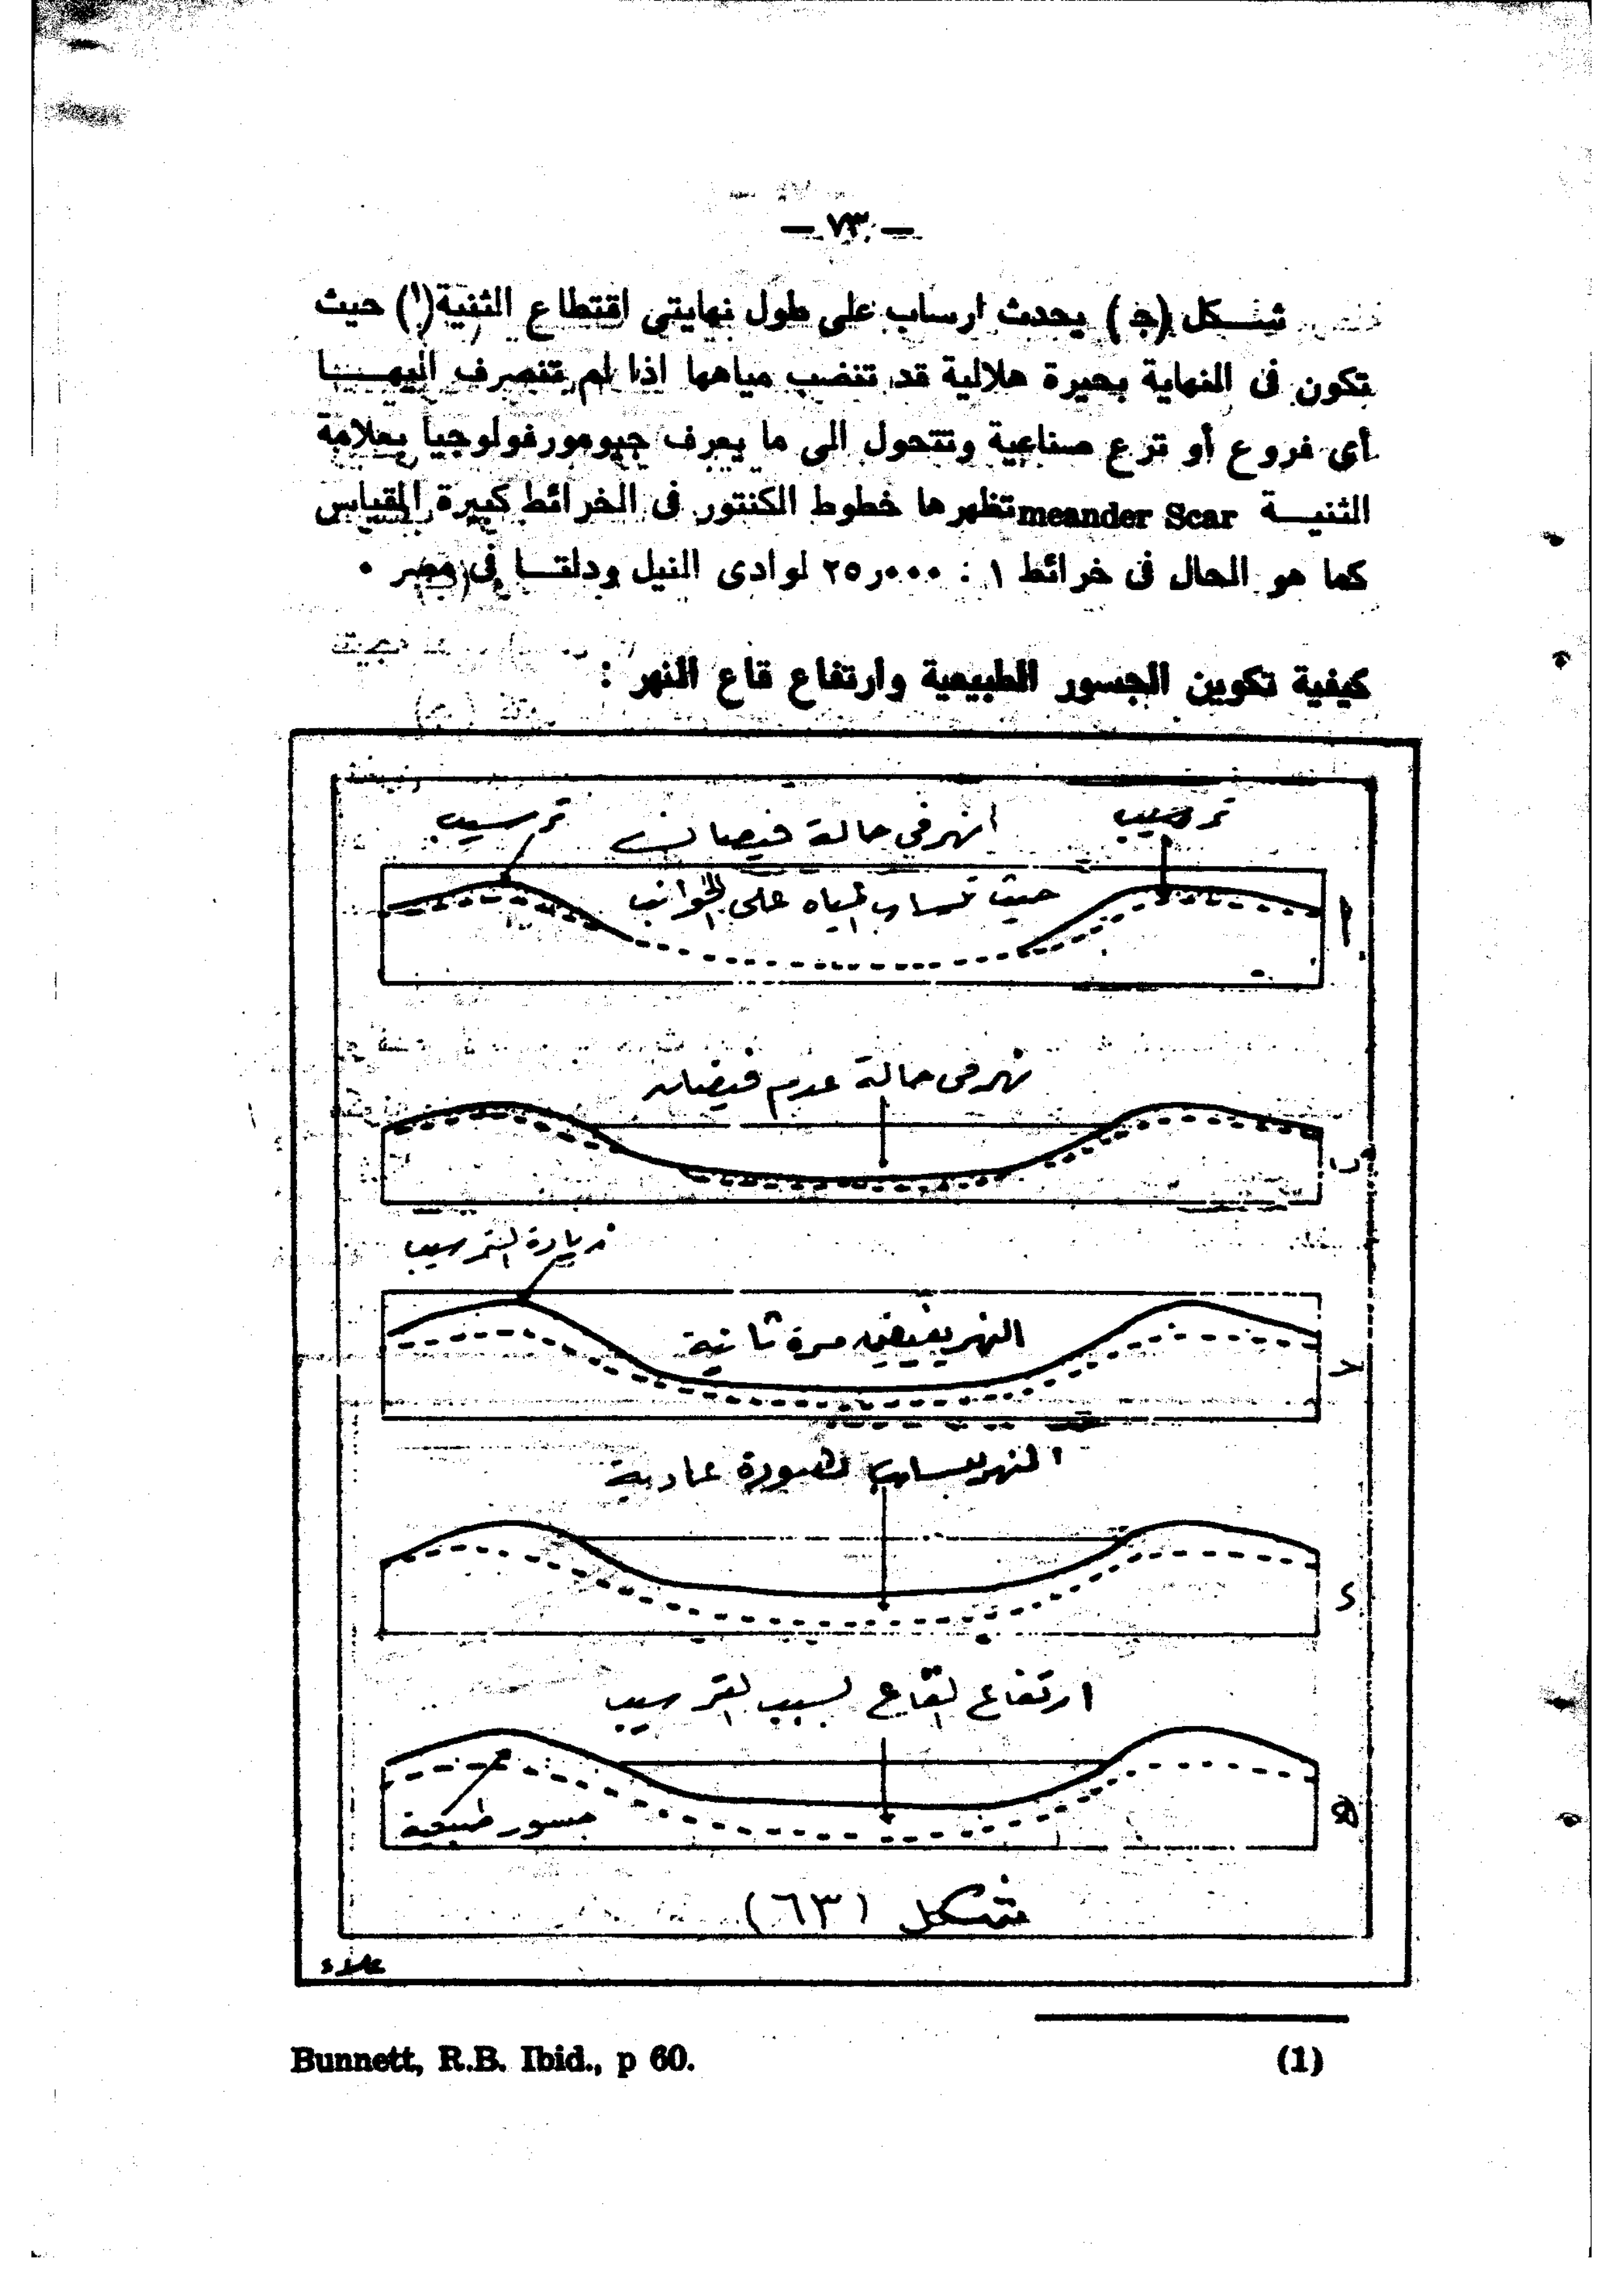 — ٧٣ —
شـــكل (ج) يحدث ارساب على طول نهايتى اقتطاع الثنية(١) حيث
تكون فى النهاية بحيرة هلالية قد تنضب مياهها اذا لم تنصرف اليهـــــا
أى فروع أو ترع صناعية وتتحول الى ما يعرف جيومورفولوجيا بعلامة
الثنيـــة meander Scar تظهرها خطوط الكنتور فى الخرائط كبيرة المقياس
كما هو الحال فى خرائط ١ : ٢٥٫٠٠٠ لوادى النيل ودلتـــا فى مصر ٠
كيفية تكوين الجسور الطبيعية وارتفاع قاع النهر :
ترسيب
انهر في حالة فيضان
ترسيب
حيث تنساب المياه على الجوانب
أ
نهر فى حالة عدم فيضان
ب
زيادة الترسيب
النهر يفيض مرة ثانية
ج
النهر ينساب بصورة عادية
د
ارتفاع القاع بسبب الترسيب
جسور طبيعية
ه
شكل (٦٣)
علاء
(1) Bunnett, R.B. Ibid., p 60.